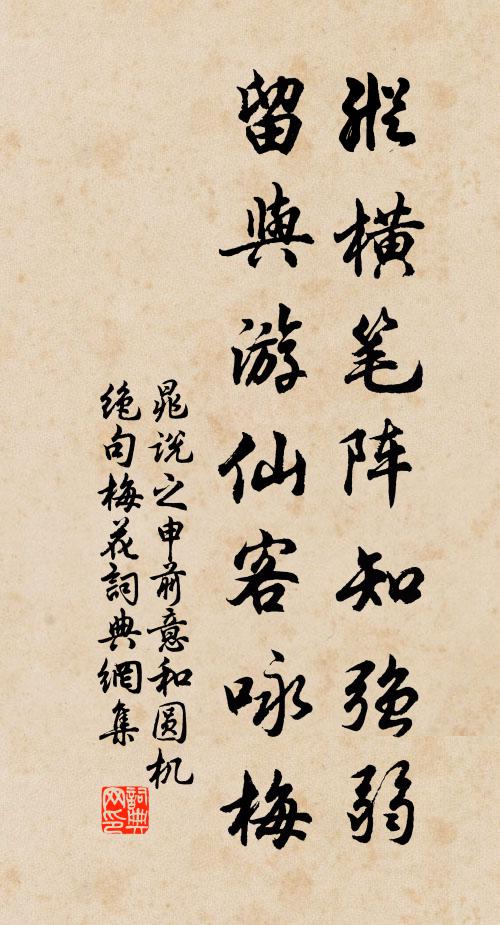 縱横笔阵知强弱
留與游仙客咏梅
晁说之申前意和圆机
绝句梅花詞典網集
詞典
网印